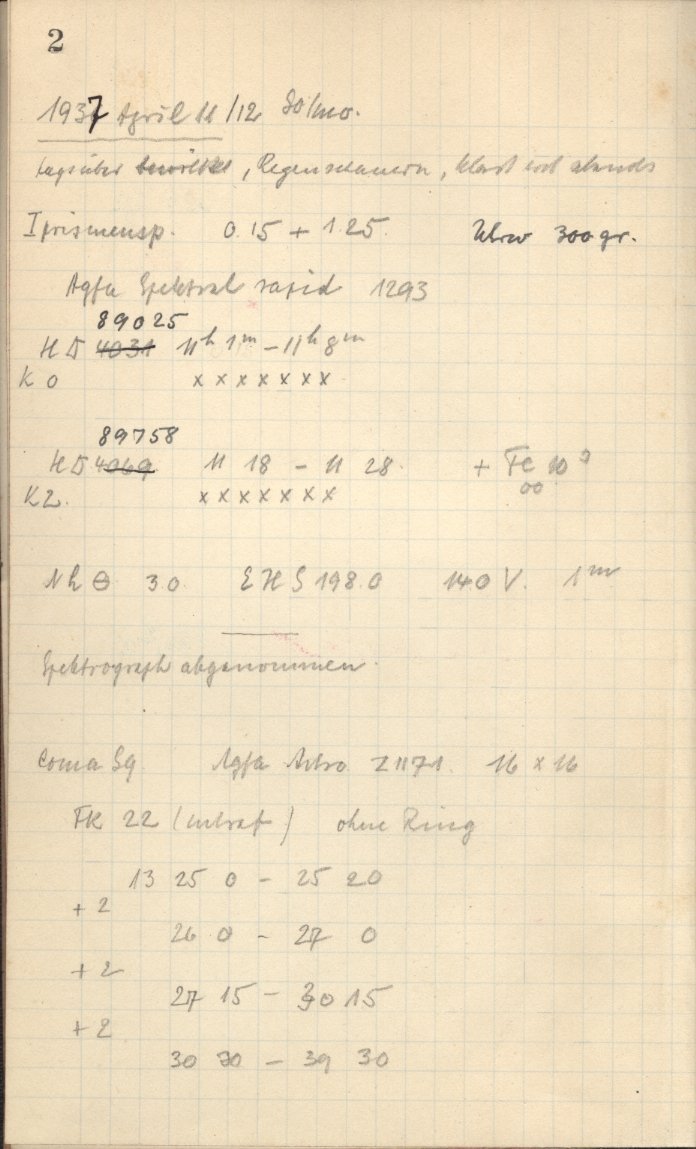 2
1937 April 11/12 So/Mo.
tagsüber bewölkt, Regenschauern, klart erst abends
I prismensp. 0.15 + 1.25 Uhrw 300gr.
Agfa Spektral rapid 1293
89025
HD 4031 11h 1m – 11h 8m
K 0 x x x x x x x
89758
HD 4069 11 18 – 11 28 + Fe 10s
K2. x x x x x x x 00
30 198.0 140 V. 1m
Spektrograph abgenommen.
Coma Agfa Astro Z1171. 16 x 16
FK 22 ohne Ring
13 25 0 – 25 20
+ 2
26 0 – 27 0
+ 2
27 15 – 30 15
+ 2
30 30 – 39 30